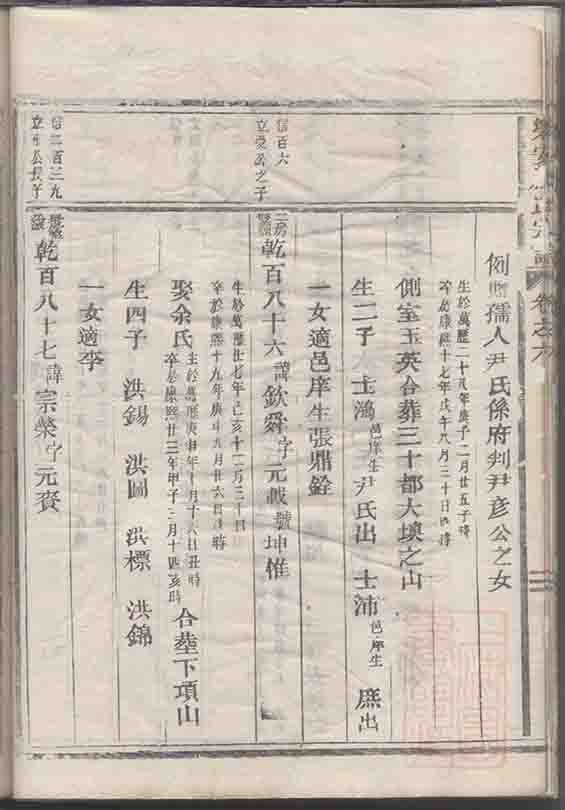 卷之六
例贈孺人尹氏係府判尹彥公之女
生於萬歷二十八年庚子二月廿五子時
卒於康熙十七年戊午八月三十日時
側室玉英合葬三十都大墺之山
生二子 士鴻邑庠生尹氏出 士浦邑庠生 庶出
一女適邑庠生張鼎銓
信百六
立受公之子
乾百八十六諱欽舜字元載號坤惟
生於萬歷廿七年己亥十二月三十日
卒於康熙十九年庚申九月廿六日時
娶余氏生於萬歷庚年十月十六日丑時
卒於康熙廿三年甲子三月十四亥時 合葬下項山
生四子 洪錫 洪圖 洪標 洪錦
一女適李
信二百三九
乾百八十七諱宗榮字元賚